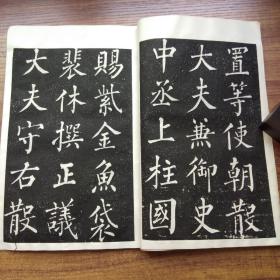 置等使朝散
大夫兼御史
中丞上柱國
賜紫金魚袋
裴休撰正議
大夫守右散